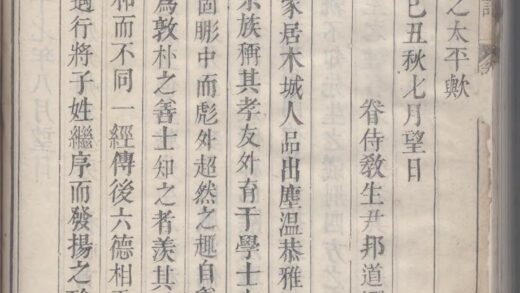 之太平歟
己丑秋七月望日
眷侍教生尹邦道
家居木城人品出塵溫恭雅
宗族稱其孝友外育于學士
弸中而彪外超然之趣自
爲敦朴之善士知之者羨其
和而不同一經傳後六德相
行將子姓繼序而發揚之